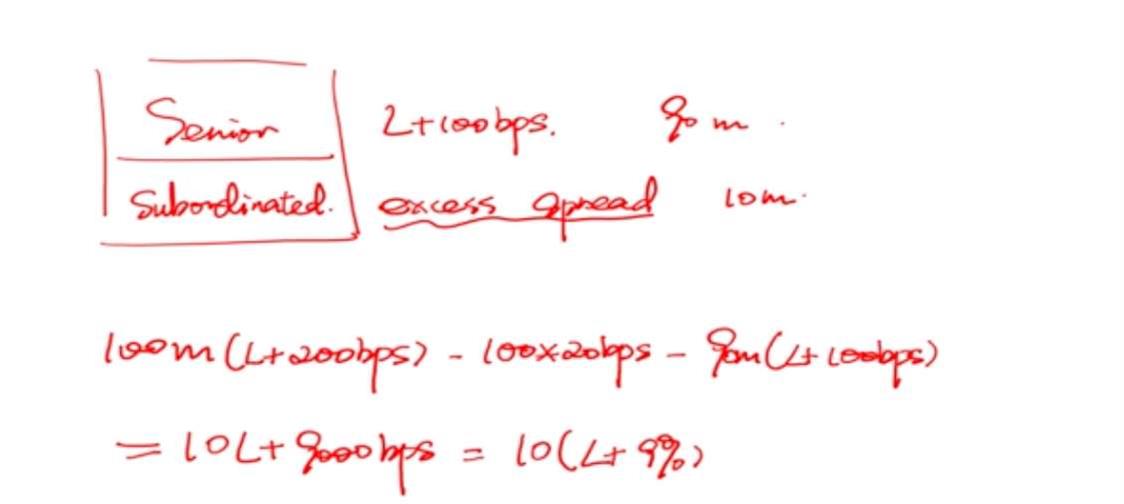 Senior L+100bps. 90m.
Subordinated. excess spread 10m.
100m(L+200bps) - 100x20bps - 90m(L+100bps)
= 10L+9000bps = 10(L+9%)